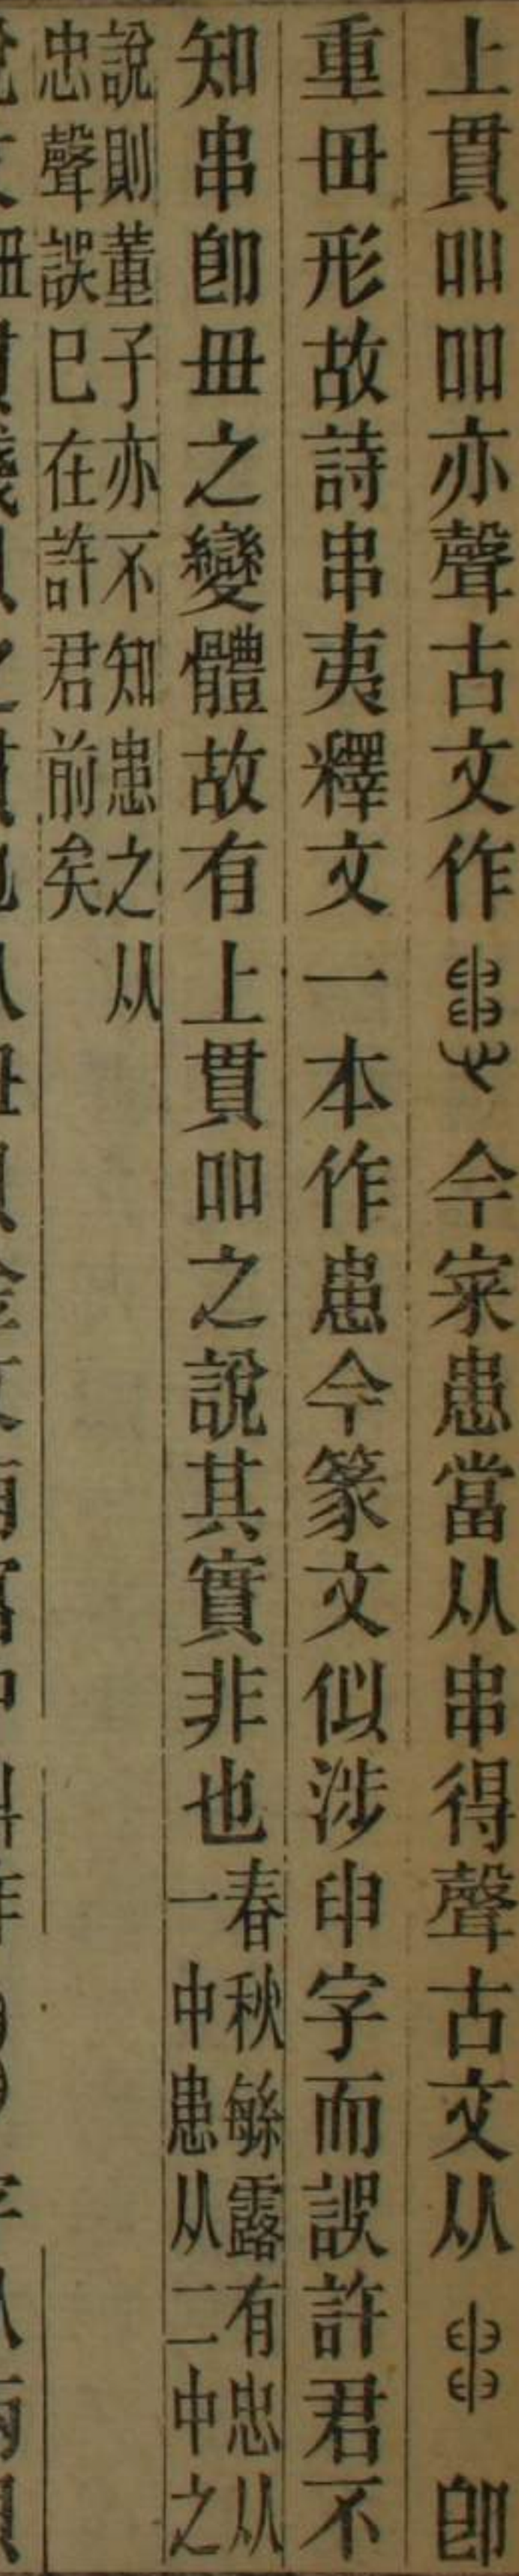 上貫吅吅亦聲古文作𢠩今寀患當从串得聲古文从即
重毌形故詩串夷釋文一本作患今篆文似涉申字而誤許君不
知串卽毌之變體故有上貫吅之說其實非也春秋繇露有忠从一中患从二中之
說則董子亦不知患之从忠聲誤已在許君前矣